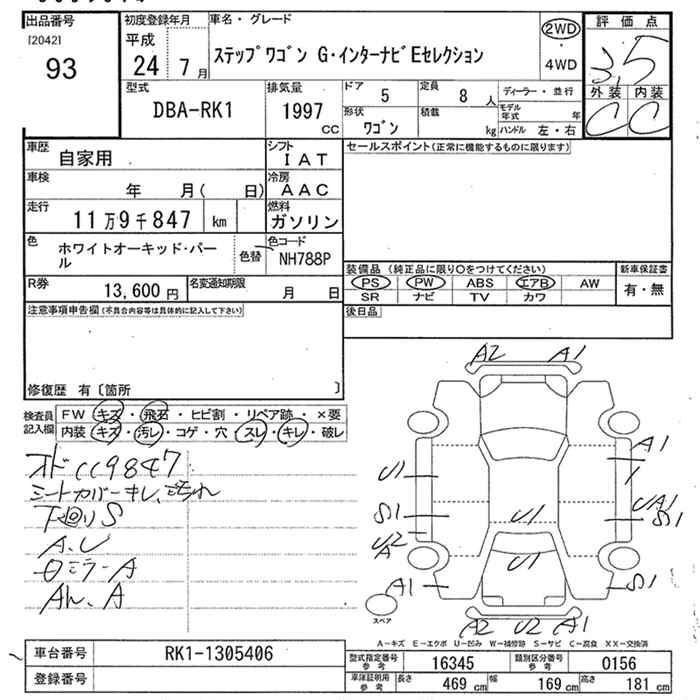 出品番号
[2042]
93
初度登録年月
平成
24 7月
車名・グレード
ステップワゴン G・インターナビEセレクション
2WD
・
4WD
評価点
3.5
外装 内装
C C
型式
DBA-RK1
排気量
1997
CC
ドア 5
定員 8 人
ディーラー・並行
形状
ワゴン
積載
kg
モデル年式 年
ハンドル 左・右
車歴
自家用
シフト
IAT
セールスポイント(正常に機能するものに限ります)
車検
年 月( 日)
冷房
AAC
走行
11万9千847 km
燃料
ガソリン
色
ホワイトオーキッド・パール
色替
色コード
NH788P
R券
13,600 円
名変通知期限
月 日
装備品 (純正品に限り○をつけてください)
PS PW ABS エアB AW
SR ナビ TV カワ
新車保証書
有・無
後日品
注意事項申告欄(不具合内容等は具体的に記入して下さい)
修復歴 有〔箇所 〕
検査員記入欄
FW キズ・飛石・ヒビ割・リペア跡・×要
内装 キズ・汚レ・コゲ・穴・スレ・キレ・破レ
シートカバーキレ、
下回りS
A、U
ロミラーA
A2 A1
A1
U1
UA1
S1 S1
U1
U1
A1 S1
A2 U2 A1
スペア
A-キズ E-エクボ U-凹み W-補修跡 S-サビ C-腐食 XX-交換済
車台番号 RK1-1305406
登録番号
型式指定番号参考 16345
類別区分番号参考 0156
車庫証明用参考
長さ 469 cm
幅 169 cm
高さ 181 cm